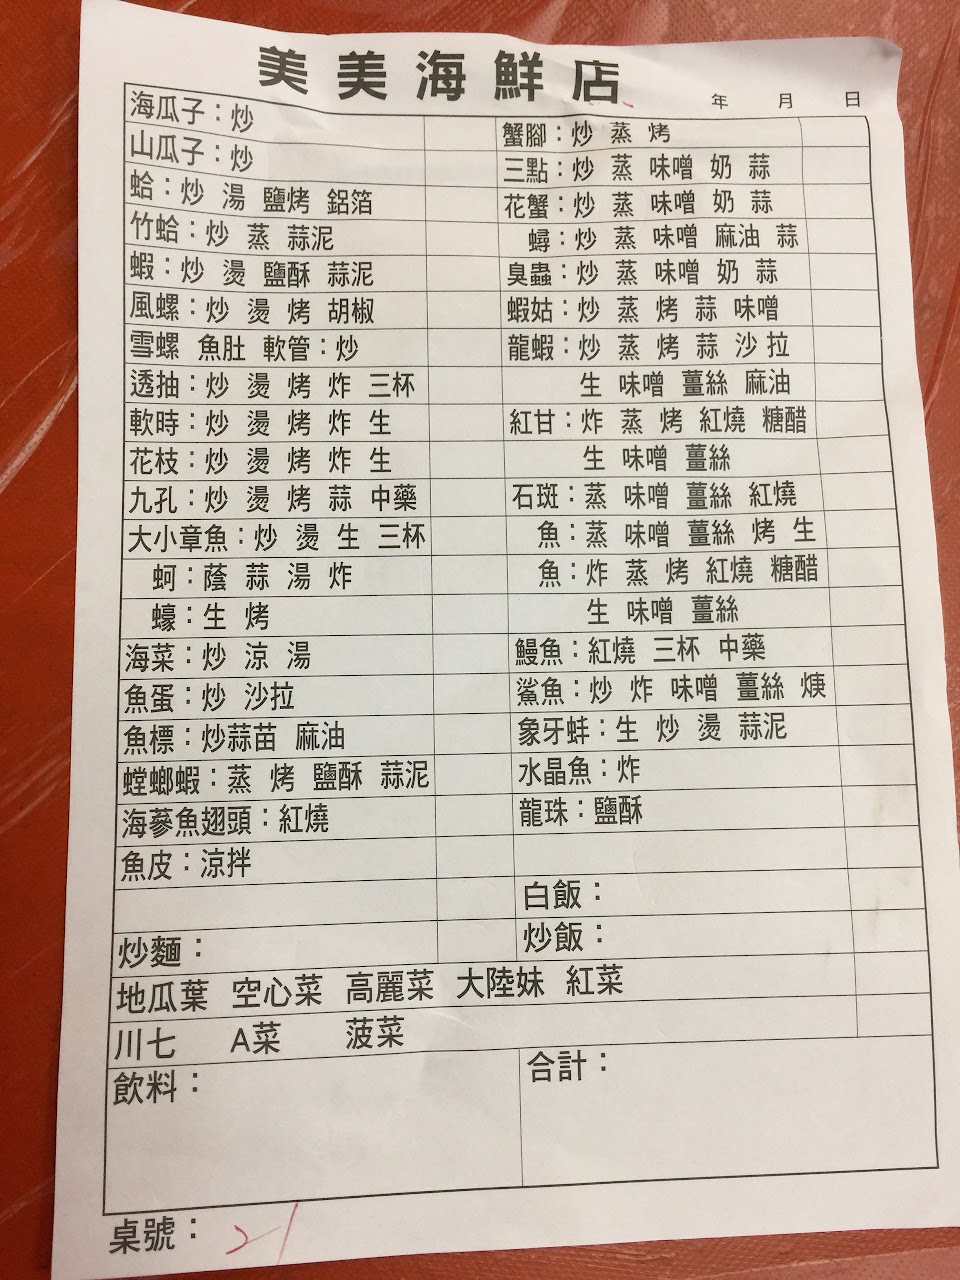 美美海鮮店
年 月 日
海瓜子：炒
山瓜子：炒
蛤：炒 湯 鹽烤 鋁箔
竹蛤：炒 蒸 蒜泥
蝦：炒 燙 鹽酥 蒜泥
風螺：炒 燙 烤 胡椒
雪螺 魚肚 軟管：炒
透抽：炒 燙 烤 炸 三杯
軟時：炒 燙 烤 炸 生
花枝：炒 燙 烤 炸 生
九孔：炒 燙 烤 蒜 中藥
大小章魚：炒 燙 生 三杯
蚵：蔭 蒜 湯 炸
蠔：生 烤
海菜：炒 涼 湯
魚蛋：炒 沙拉
魚標：炒蒜苗 麻油
螳螂蝦：蒸 烤 鹽酥 蒜泥
海蔘魚翅頭：紅燒
魚皮：涼拌
炒麵：
蟹腳：炒 蒸 烤
三點：炒 蒸 味噌 奶 蒜
花蟹：炒 蒸 味噌 奶 蒜
蟳：炒 蒸 味噌 麻油 蒜
臭蟲：炒 蒸 味噌 奶 蒜
蝦姑：炒 蒸 烤 蒜 味噌
龍蝦：炒 蒸 烤 蒜 沙拉
生 味噌 薑絲 麻油
紅甘：炸 蒸 烤 紅燒 糖醋
生 味噌 薑絲
石斑：蒸 味噌 薑絲 紅燒
魚：蒸 味噌 薑絲 烤 生
魚：炸 蒸 烤 紅燒 糖醋
生 味噌 薑絲
鰻魚：紅燒 三杯 中藥
鯊魚：炒 炸 味噌 薑絲
象牙蚌：生 炒 燙 蒜泥
水晶魚：炸
龍珠：鹽酥
白飯：
炒飯：
地瓜葉 空心菜 高麗菜 大陸妹 紅菜
川七 A菜 菠菜
飲料：
合計：
桌號：21